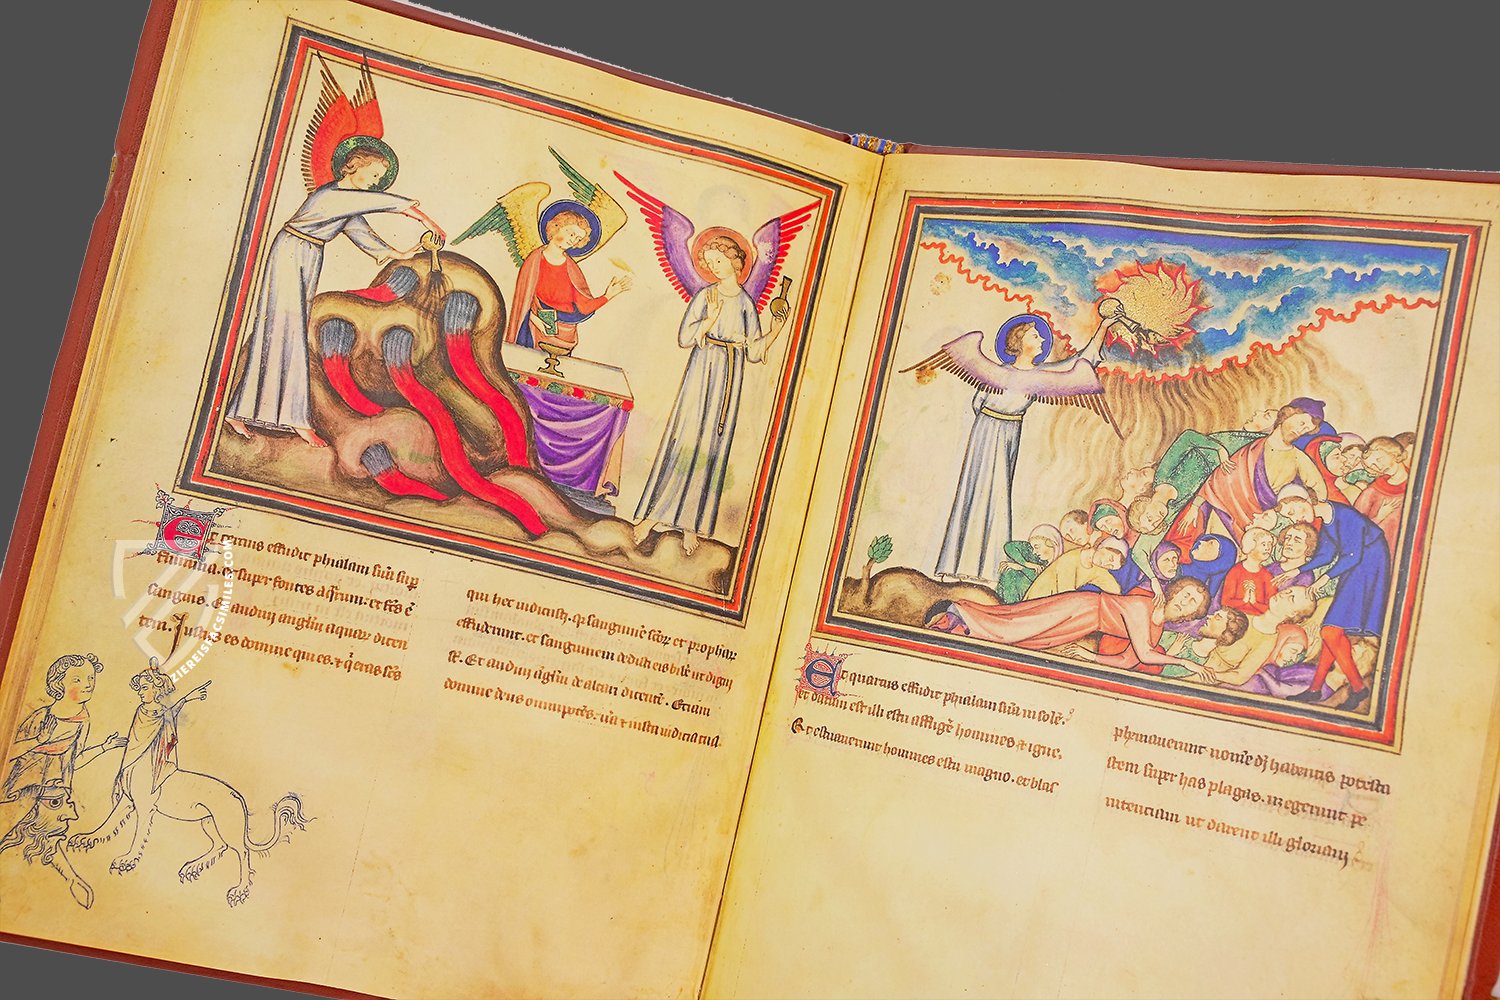 Et tercius effudit phialam suā sup
flumina. et super fontes aquarum. et
sanguis. Et audiui angl̄m aquar̄ dicen
tem. Justus es domine qui es. ⁊ q̄ eras sc̄s
qui hec iudicasti. q̄ sanguinē sc̄or̄ et prophar̄
effuderunt. et sanguinem dedisti eis bibē. ut digni
st̄. Et audiui
domine deus omnipotēs. uera ⁊ iusta iudicia tua.
Et quartus effudit phialam suā in solē.
et datum est illi estu affligē homines ⁊ igne.
Et estuauerunt homines estu magno. et blas
phemauerunt nomē dī habentis potesta
tem super has plagas. neq̄ egerunt pe
nitenciam ut darent illi gloriam
ZIEREISFACSIMILES.COM